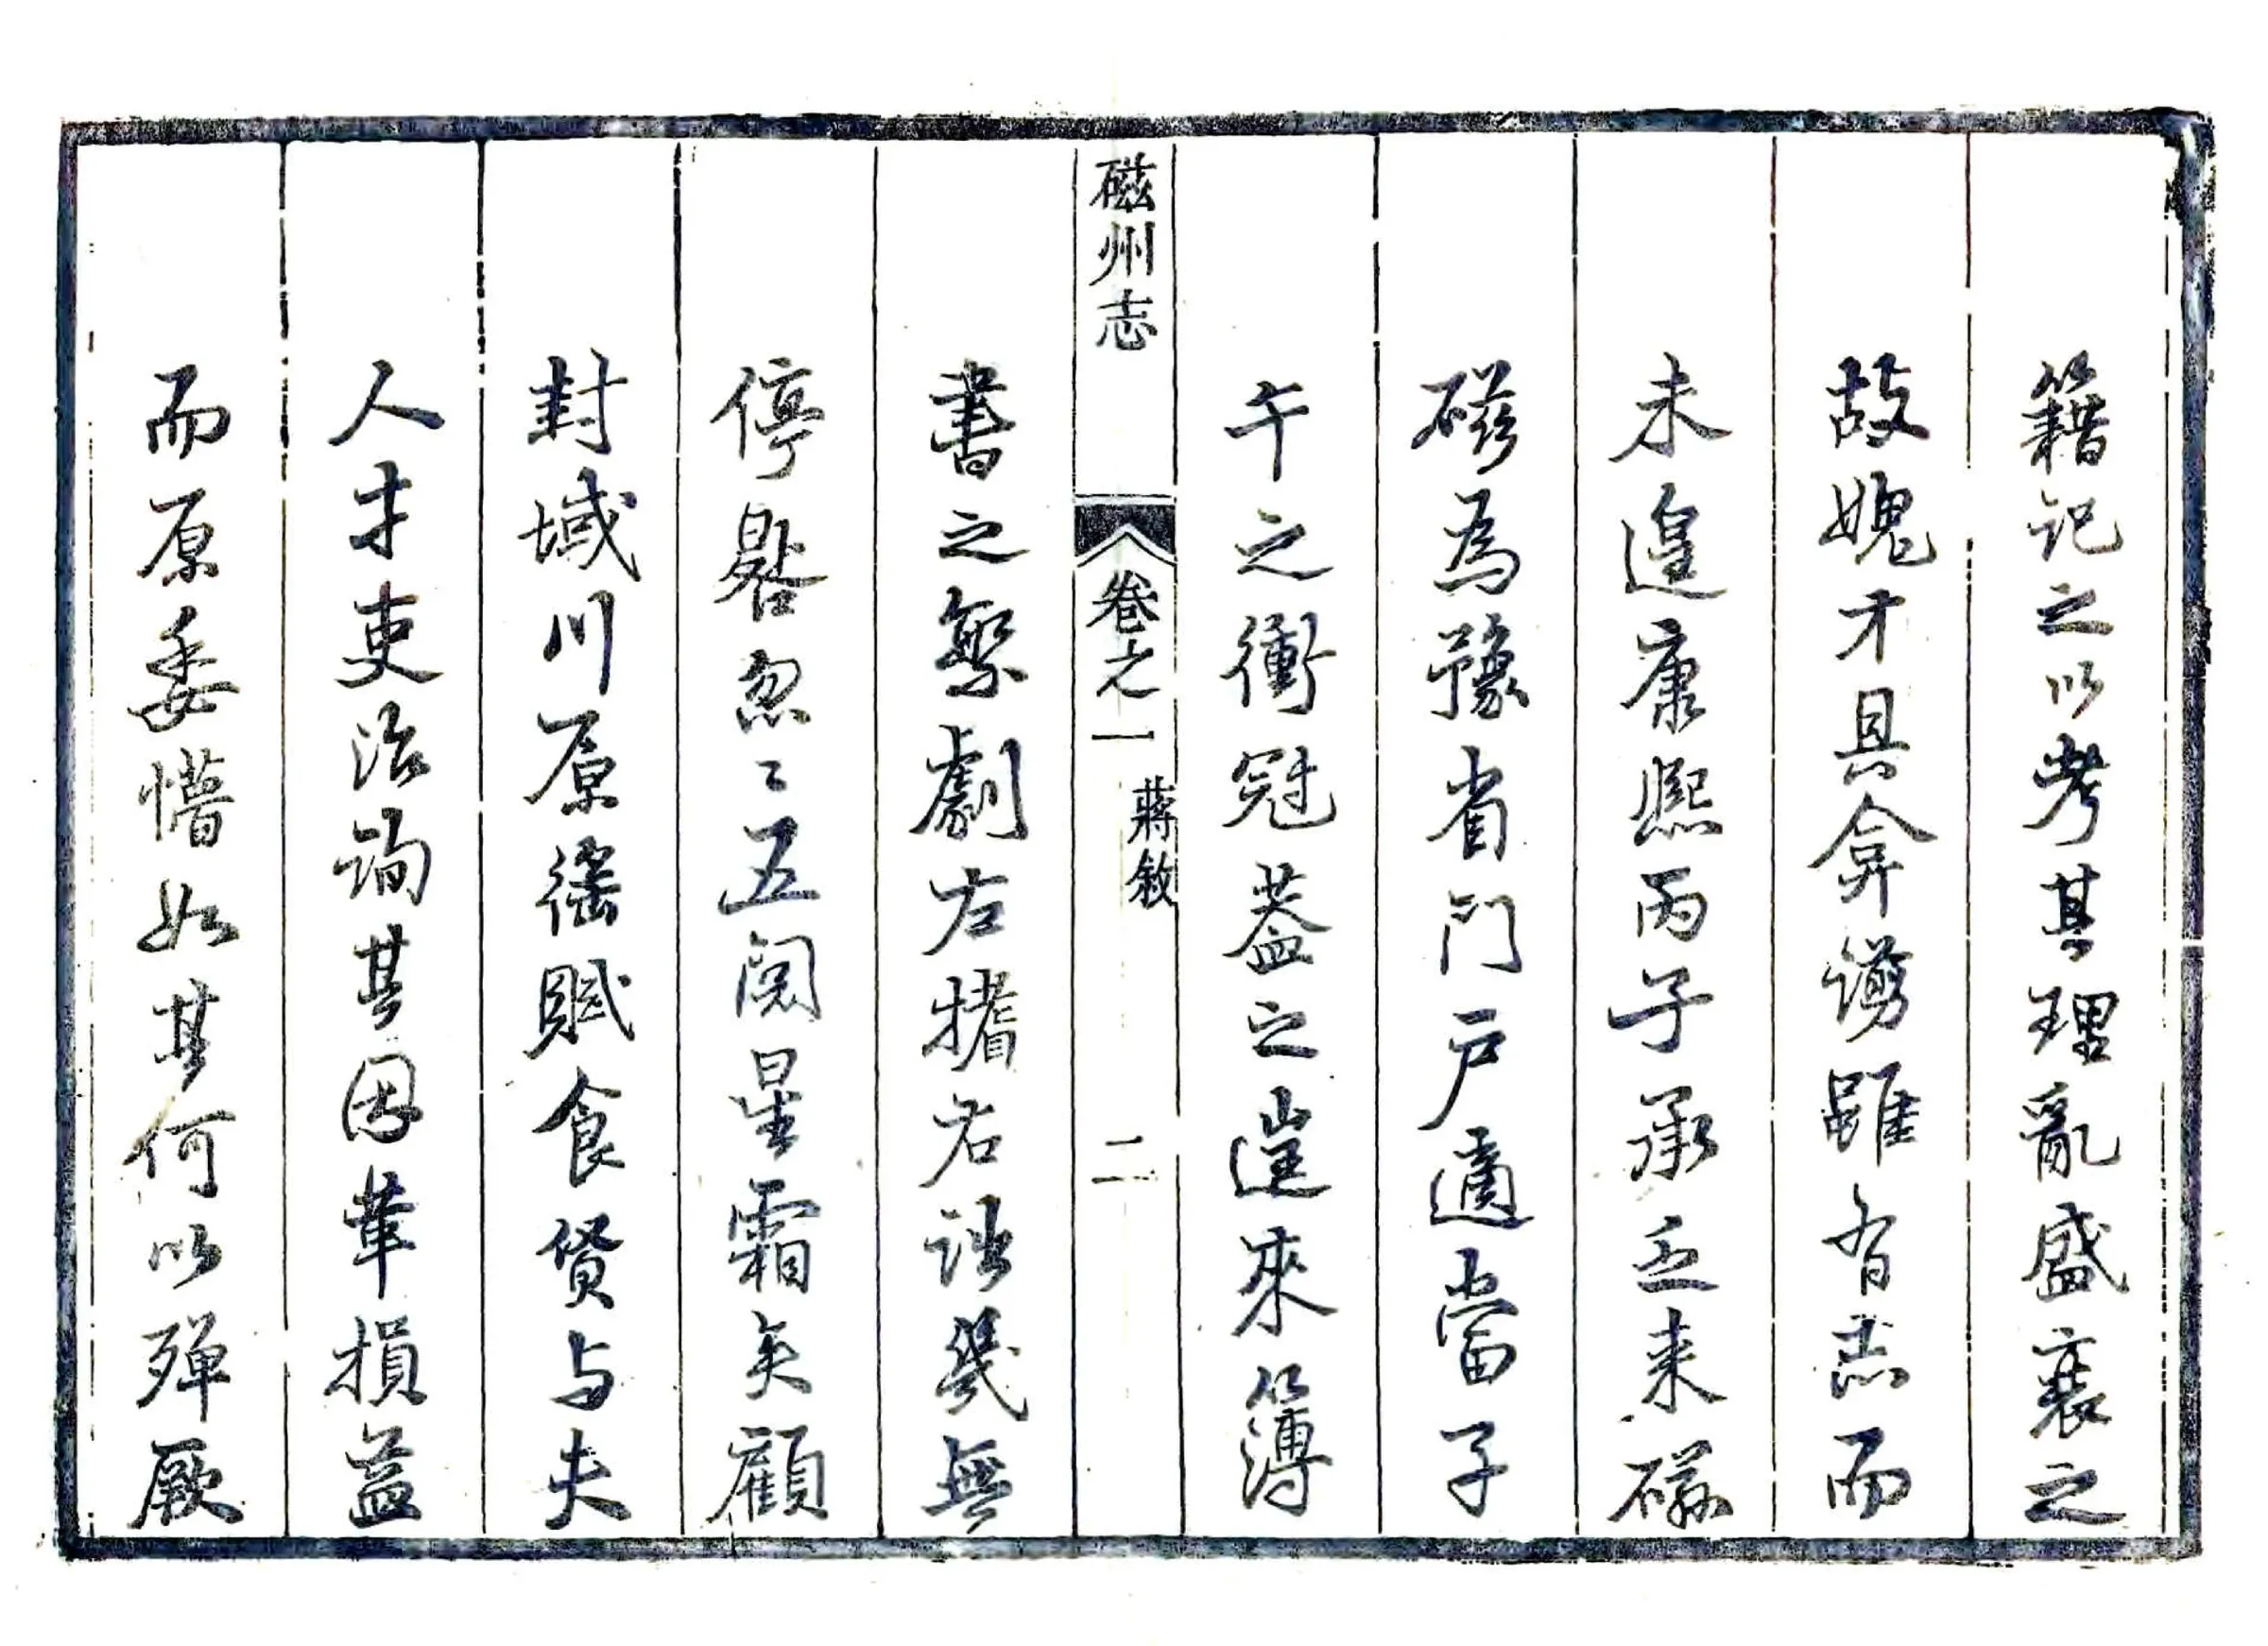 籍記之以考其理亂盛衰之
故媿才具弇謭雖有志而
未遑康熙丙子承乏来磁
磁為豫省門户適當子
午之衝冠蓋之𨓹來簿
磁州志 卷之一 蔣敘 二
書之繁劇左搘右詘幾無
停晷忽〻五閱星霜矣顧
封域川原徭賦食貨与夫
人才吏治詢其因革損益
而原委懵如其何以殫厥